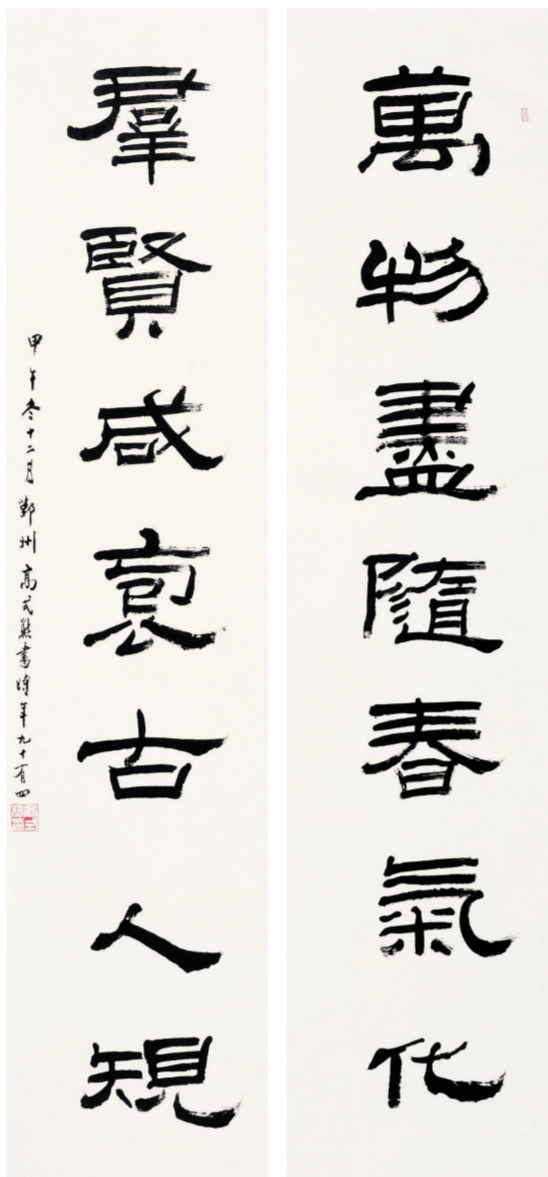 萬物盡隨春氣化
羣賢咸裒古人規
甲午冬十二月鄞州高式熊書時年九十有四